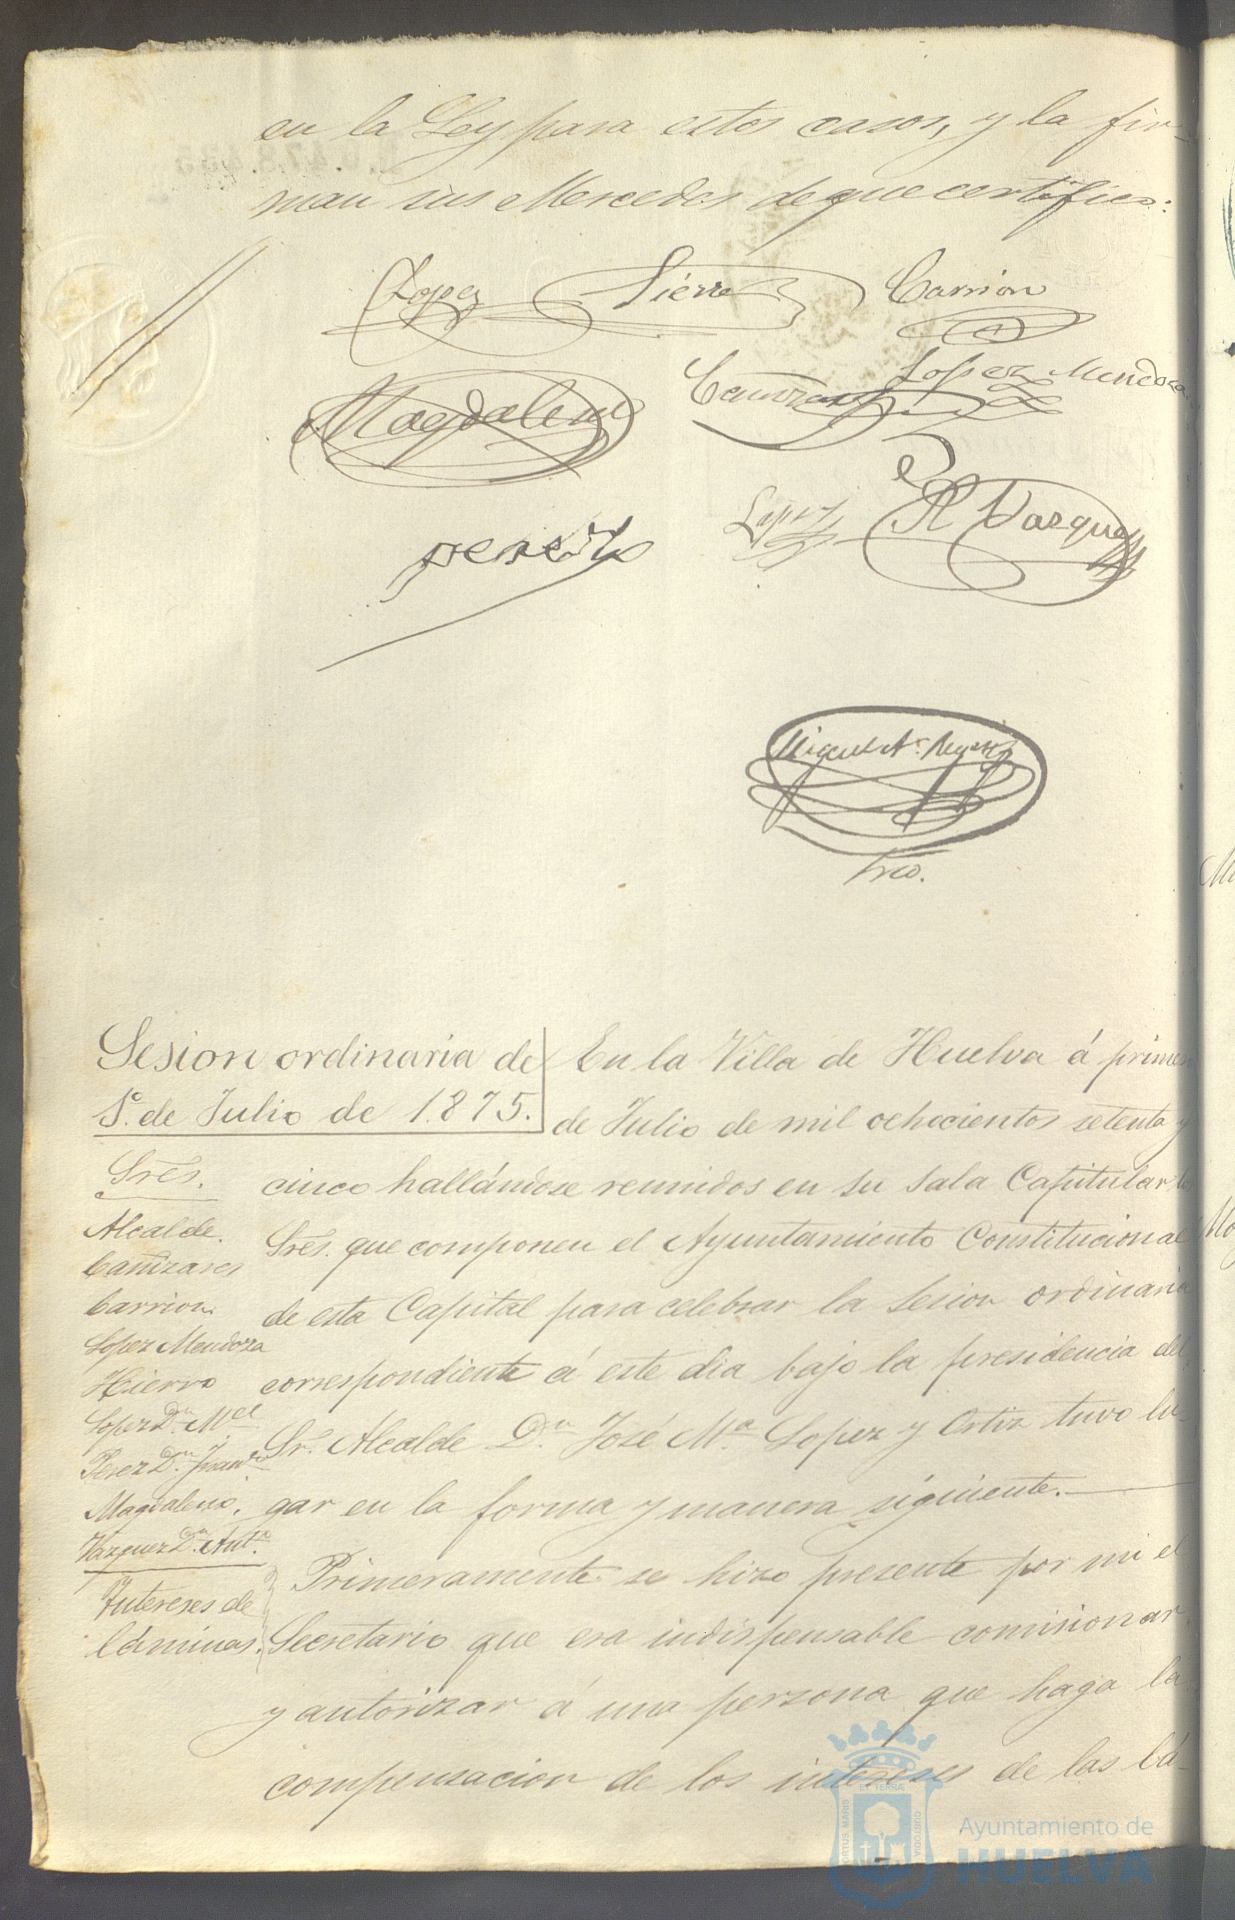 en la Ley para estos casos, y la fir-
man sus Mercedes de que certifico:
Lopez
Hierro
Carrion
Magdalena
Cañizares
Lopez Mendoza
perez
Lopez
A Vazquez
Miguel A.
Srio.
Sesion ordinaria de
1º de Julio de 1.875.
Sres.
Alcalde.
Cañizares
Carrion
Lopez Mendoza
Hierro
Lopez Dn. Mel
Perez Dn. Juan
Magdalena.
Vazquez Dn. Antº.
Intereses de
láminas.
En la Villa de Huelva á primero
de Julio de mil ochocientos setenta y
cinco hallándose reunidos en su Sala Capitular los
Sres. que componen el Ayuntamiento Constitucional
de esta Capital para celebrar la Sesion ordinaria
correspondiente á este dia bajo la presidencia del
Sr. Alcalde Dn. José Mª Lopez y Ortiz tuvo lu-
gar en la forma y manera siguiente.
Primeramente se hizo presente por mi el
Secretario que era indispensable comisionar
y autorizar á una persona que haga la
compensacion de los intereses de las lá-
PORTUS MARIS ET TERRAE CUSTODIA
Ayuntamiento de
HUELVA